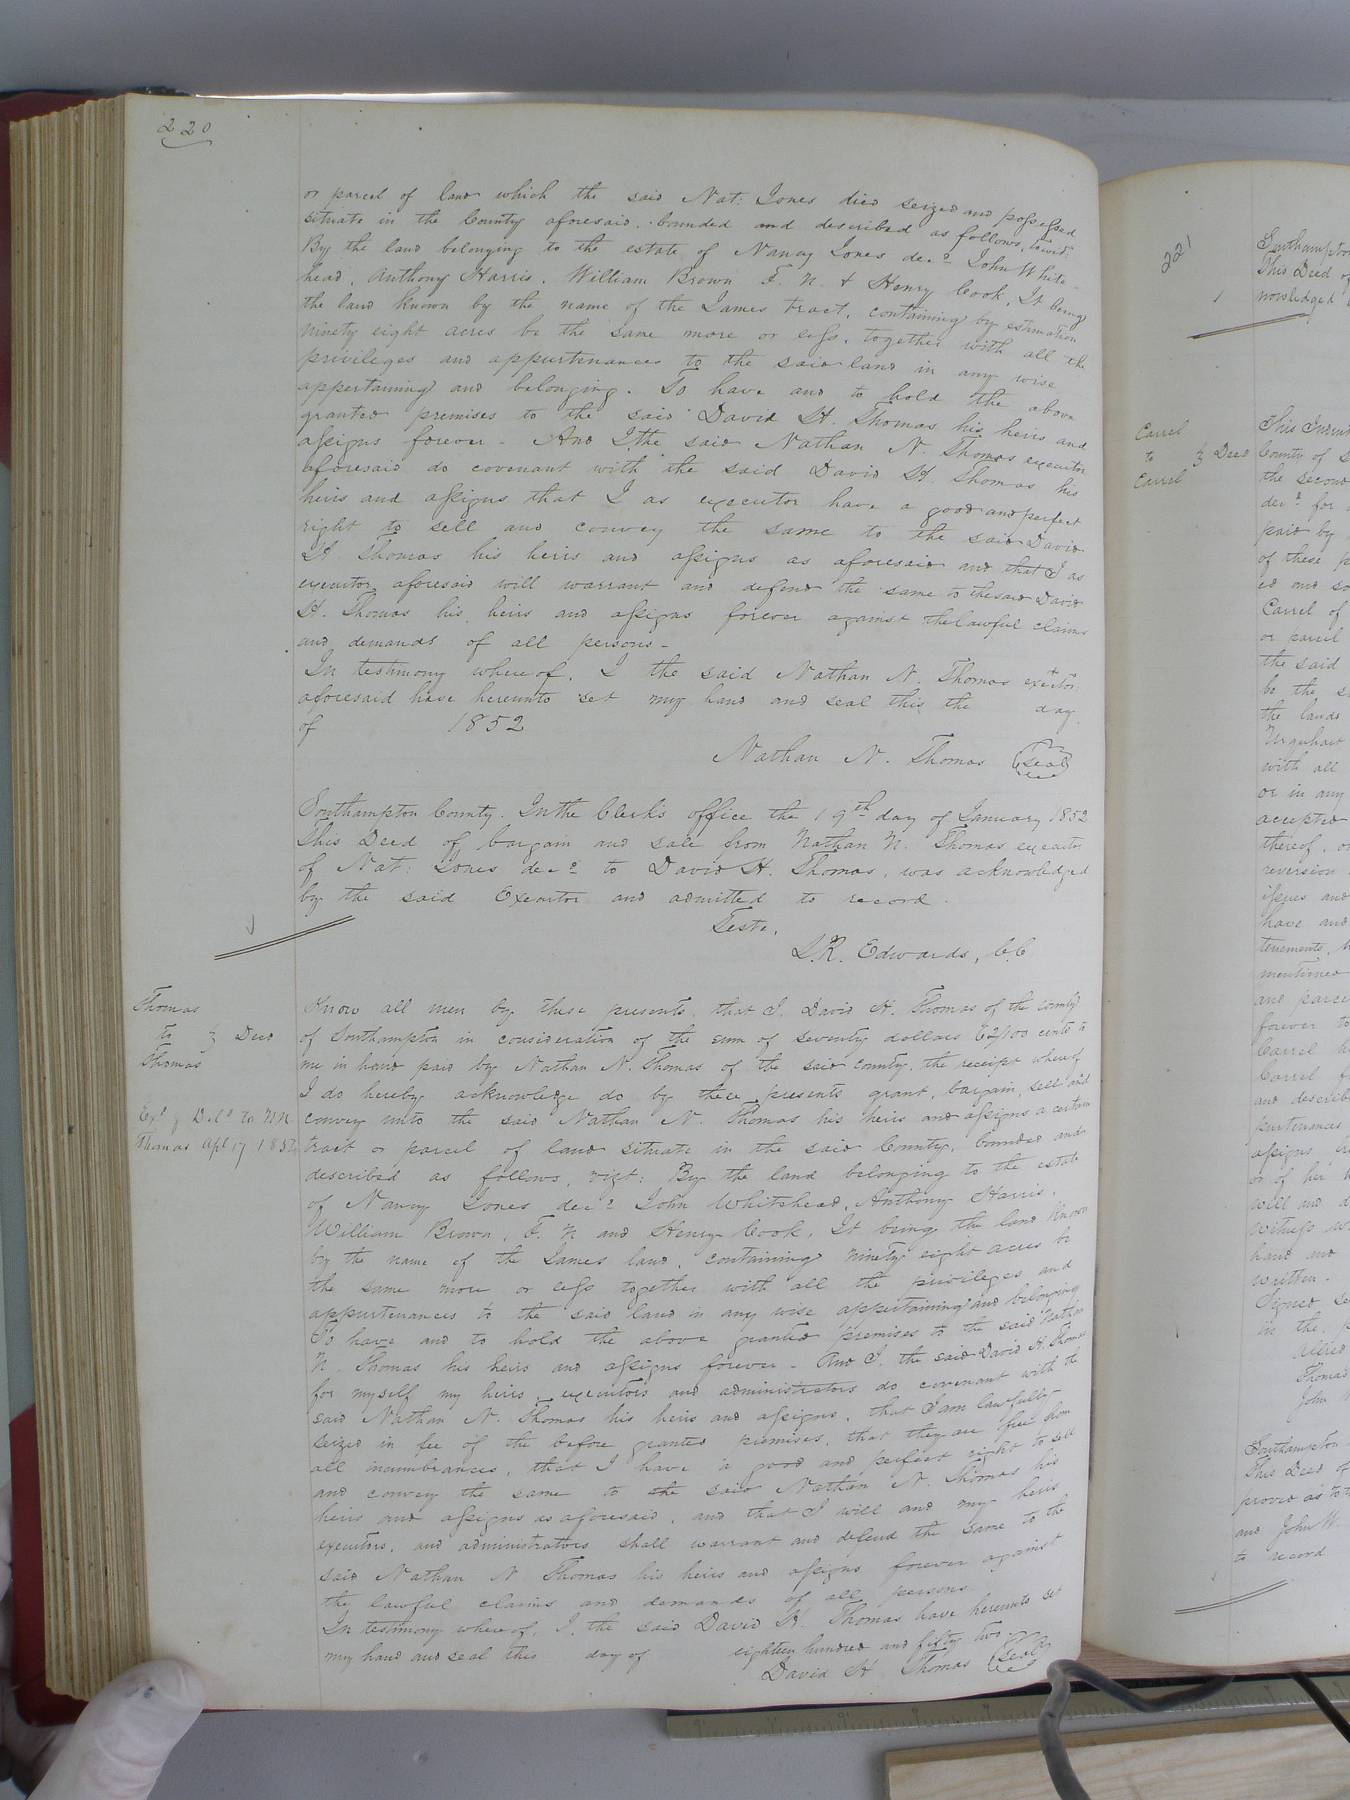 220
or parcel of land which the said Nat: Jones died seized and possessed
situate in the County aforesaid, bounded and described as follows, towit:
By the land belonging to the estate of Nancy Jones decd John White-
head, Anthony Harris, William Brown F. N. & Henry Cook, It being
the land known by the name of the James tract, containing by estimation
ninety eight acres be the same more or less, together with all the
privileges and appurtenances to the said land in any wise
appertaining and belonging. To have and to hold the above
granted premises to the said David H. Thomas his heirs and
assigns forever - And I the said Nathan N. Thomas executor
aforesaid do covenant with the said David H. Thomas his
heirs and assigns that I as executor have a good and perfect
right to sell and convey the same to the said David
H. Thomas his heirs and assigns as aforesaid and that I as
executor aforesaid will warrant and defend the same to the said David
H. Thomas his heirs and assigns forever against the lawful claims
and demands of all persons -
In testimony whereof, I the said Nathan N. Thomas exector
aforesaid have hereunto set my hand and seal this the day
of 1852
Nathan N. Thomas (seal)
Southampton County. In the Clerk's office the 19th day of January 1852
This Deed of bargain and sale from Nathan N. Thomas executor
of Nat: Jones decd to David H. Thomas, was acknowledged
by the said Executor and admitted to record.
Teste,
L.R. Edwards, C.C
Thomas
to } Deed
Thomas
Exd & Deld to N N
Thomas Apl 17 1852
Know all men by these presents, that I, David H. Thomas of the county
of Southampton in consideration of the sum of seventy dollars 62/100 cents to
me in hand paid by Nathan N. Thomas of the said County, the receipt whereof
I do hereby acknowledge do by these presents grant, bargain, sell and
convey unto the said Nathan N. Thomas his heirs and assigns a certain
tract or parcel of land situate in the said County, bounded and
described as follows, vizt: By the land belonging to the estate
of Nancy Jones decd John Whitehead, Anthony Harris,
William Brown, F. N and Henry Cook, It being the land known
by the name of the James land, containing ninety eight acres be
the same more or less together with all the privileges and
appurtenances to the said land in any wise appertaining and belonging
To have and to hold the above granted premises to the said Nathan
N. Thomas his heirs and assigns forever - And I, the said David H. Thomas
for myself my heirs, executors and administrators do covenant with the
said Nathan N. Thomas his heirs and assigns, that I am lawfully
seized in fee of the before granted premises, that they are free from
all incumbrances, that I have a good and perfect right to sell
and convey the same to the said Nathan N. Thomas his
heirs and assigns as aforesaid, and that I will and my heirs
executors, and administrators shall warrant and defend the same to the
said Nathan N Thomas his heirs and assigns forever against
the lawful claims and demands of all persons
In testimony whereof, I, the said David H. Thomas have hereunto set
my hand and seal this day of eighteen hundred and fifty two
David H Thomas (seal)
221
Southampton
This Deed of
nowledged
Carrel
to } Deed
Carrel
This Inden
County of S
the second
decd for
paid by
of these p
ed and so
Carrel of
or parcel
the said
be the s
the lands
Urquhart
with all
or in any
accepted
thereof, o
reversion
issues and
have and
tenements, h
mentioned
and parce
forever to
Carrel h
Carrel f
and describ
purtenances
assigns
or of her h
will and d
Witness w
hand and
written.
Signed se
in the p
Thomas
John
Southampton
This Deed of
proved as to t
and John W.
to record